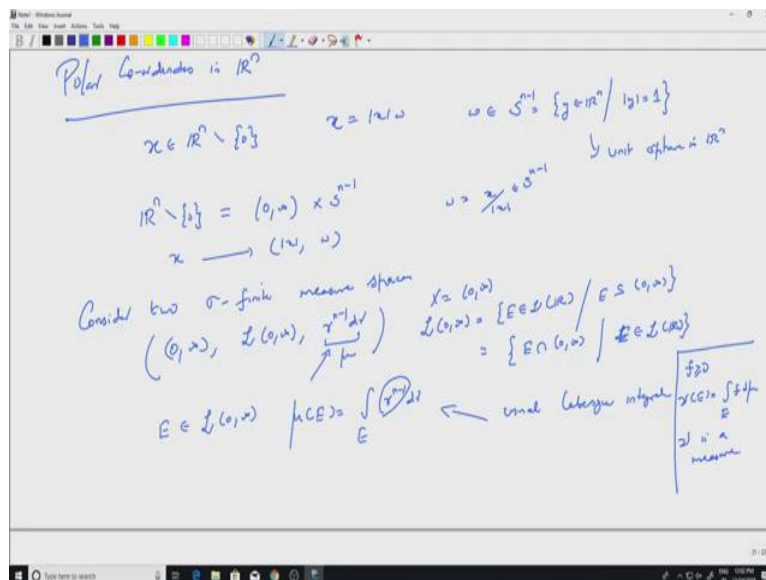 Note1 - Windows Journal
File Edit View Insert Actions Tools Help
Polar Co-ordinates in ℝⁿ
x ∈ ℝⁿ \ {0}   x = |x| ω   ω ∈ Sⁿ⁻¹ = {y ∈ ℝⁿ / |y| = 1}
↳ unit sphere in ℝⁿ
ℝⁿ \ {0} = (0,∞) × Sⁿ⁻¹   ω = x/|x| ∈ Sⁿ⁻¹
x ⟶ (|x|, ω)
Consider two σ-finite measure spaces   X = (0,∞)
((0,∞), L(0,∞), rⁿ⁻¹dr)   L(0,∞) = {E ∈ L(ℝ) / E ⊆ (0,∞)}
μ   = {E ∩ (0,∞) / E ∈ L(ℝ)}
E ∈ L(0,∞)   μ(E) = ∫_E rⁿ⁻¹ dr ⟵ usual Lebesgue integral
f ≥ 0
ν(E) = ∫_E f dμ
ν is a
measure
Type here to search